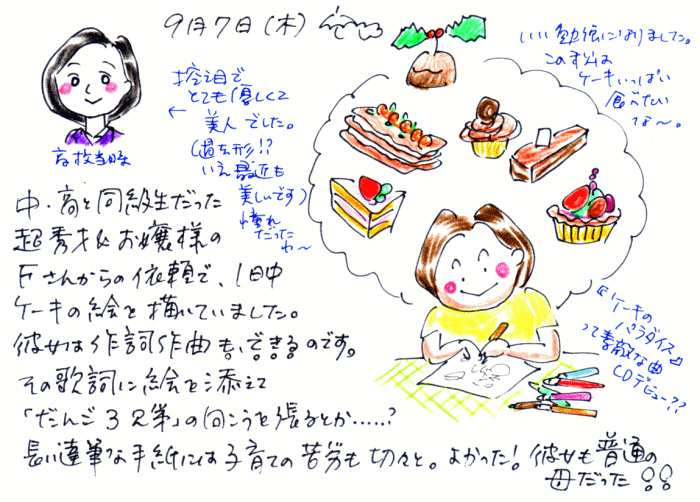 9月7日(木)
高校当時
控え目で
とても優しくて
美人でした。
(過去形!?
いえ最近も
美しいです)
憧れ
だった
わ〜
いい勉強になりました。
この すは
ケーキいっぱい
食べたい
な〜。
中・高と同級生だった
超秀才お嬢様の
Fさんからの依頼で、1日中
ケーキの絵を描いていました。
彼女は作詞作曲もできるのです。
その歌詞に絵を添えて
「だんご3兄弟」の向こうを張るとか……?
長い達筆な手紙には子育ての苦労も切々と。よかった!彼女も普通の
母だった!!
『ケーキの
パラダイス』
って素敵な曲
CDデビュー??